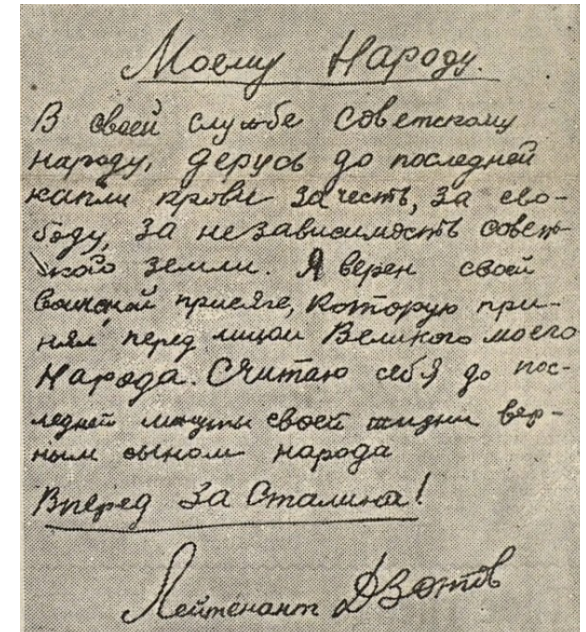 Моему Народу.
В своей службе Советскому
народу, дерусь до последней
капли крови за честь, за сво-
боду, за независимость совет-
ского земли. Я верен своей
воинской присяге, которую при-
нял перед лицом Великого моего
Народа. Считаю себя до пос-
ледней минуты своей жизни вер-
ным сыном народа
Вперед за Сталина!
Лейтенант